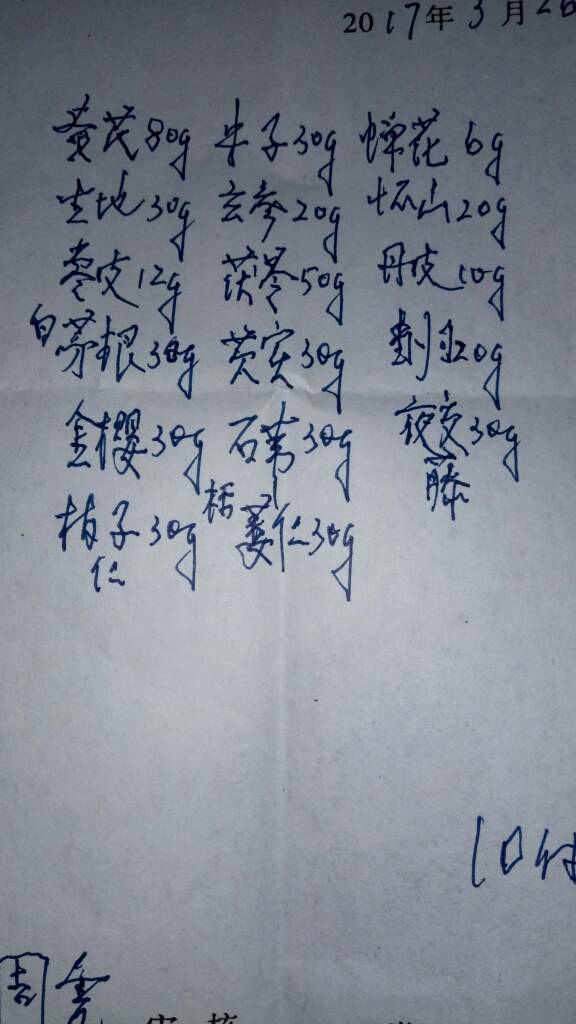 2017年3月26
黄芪80g 牛子30g 蝉花6g
生地30g 玄参20g 怀山20g
枣皮12g 茯苓50g 丹皮10g
白茅根30g 芡实30g 20g
金樱30g 石苇30g 夜交藤30g
柏子仁30g 栝蒌仁30g
10付
周
审 核